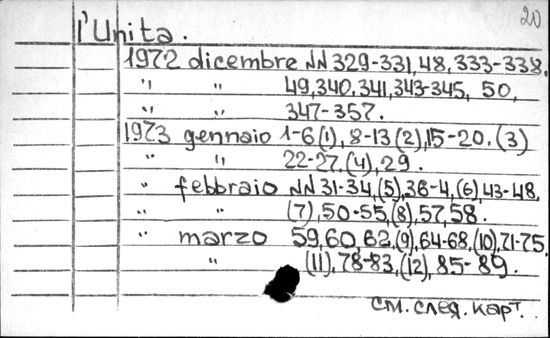 20
l'Unita.
1972 dicembre NN 329-331, 48, 333-338,
" " 49, 340, 341, 343-345, 50,
" " 347-357.
1973 gennaio 1-6(1), 8-13(2), 15-20.(3)
" " 22-27,(4), 29.
" febbraio NN 31-34,(5), 36-4,(6) 43-48,
" " (7), 50-55,(8), 57, 58.
" marzo 59, 60, 62,(9), 64-68,(10), 71-75.
" (11), 78-83,(12), 85-89.
см. след. карт.